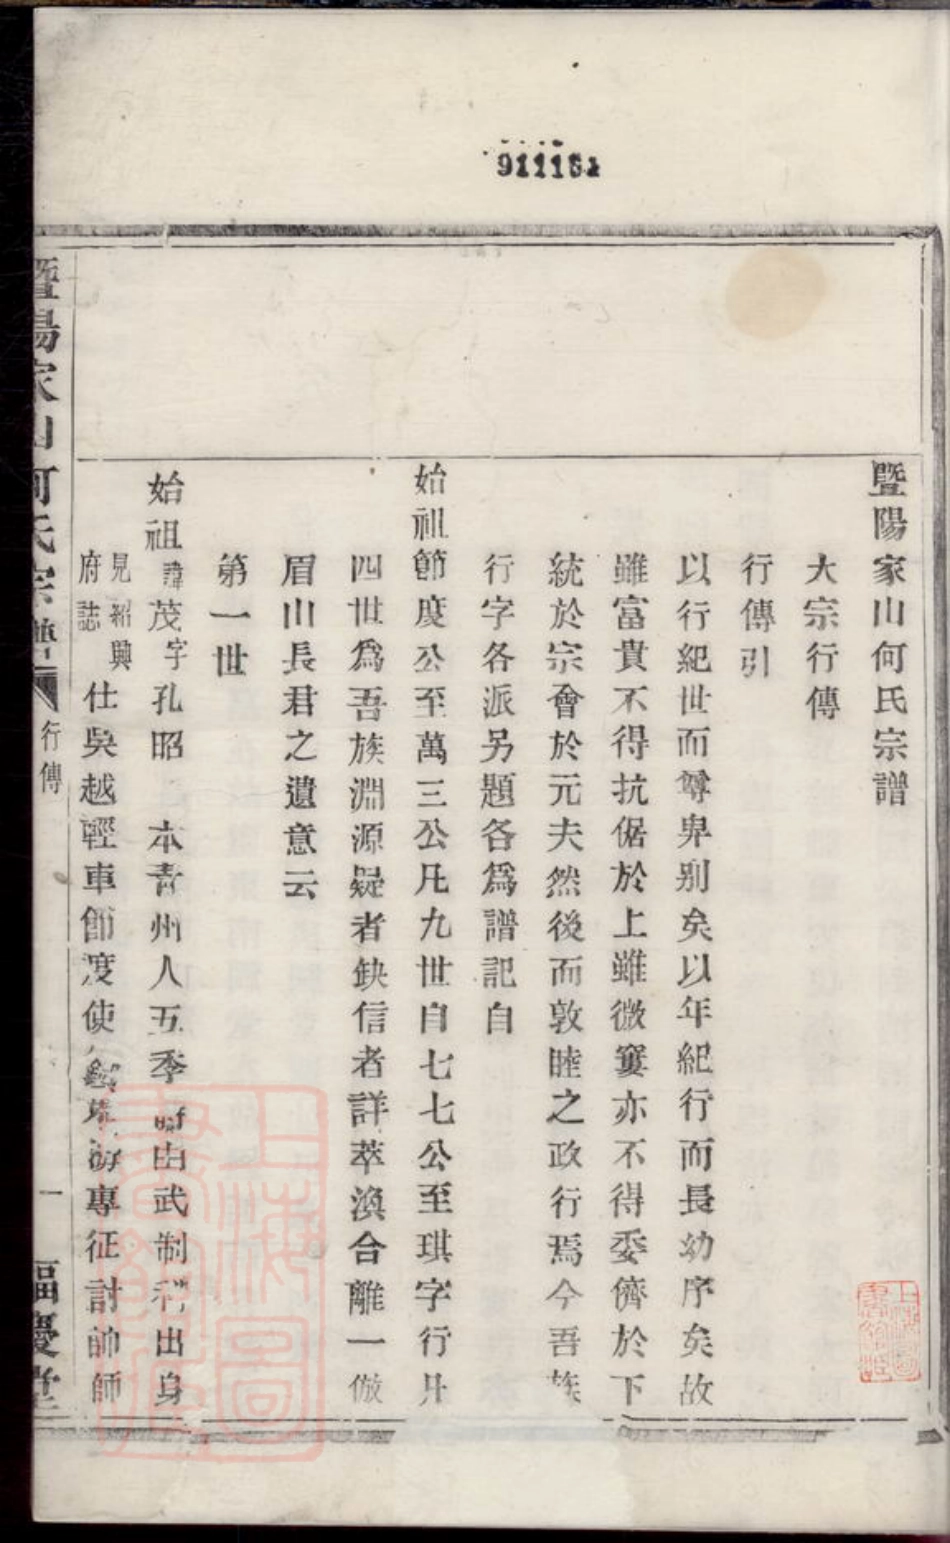 911181
暨陽家山何氏宗譜
大宗行傳
行傳引
以行紀世而尊卑别矣以年紀行而長幼序矣故
雖富貴不得抗倨於上雖微寠亦不得委儕於下
統於宗會於元夫然後而敦睦之政行焉今吾族
行字各派另題各爲譜記自
始祖節度公至萬三公凡九世自七七公至琪字行凡
四世爲吾族淵源疑者缺信者詳萃渙合離一倣
眉山長君之遺意云
第一世
始祖諱茂字孔昭 本青州人五季時由武制科出身
見紹興
府誌
仕吳越輕車節度使 專征討帥師
暨陽家山何氏宗譜 行傳 一 福慶堂
上海圖書館藏